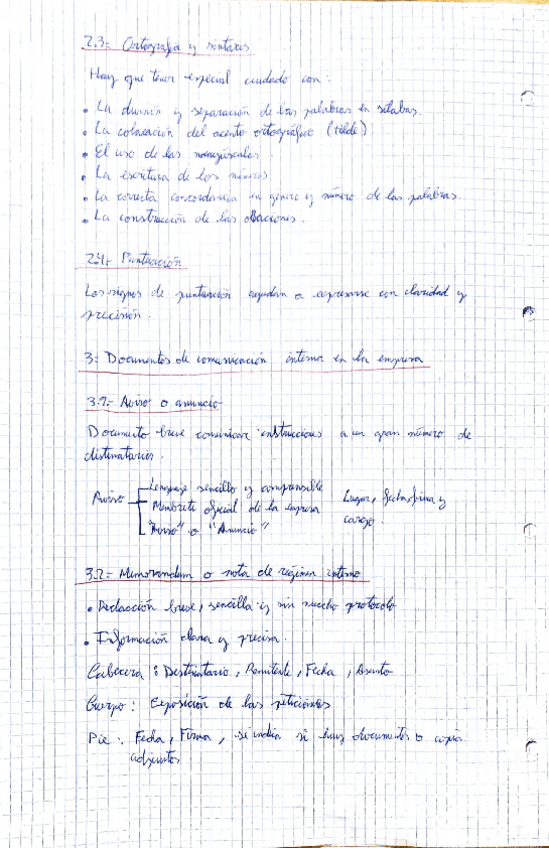 2.3- Ortografía y sintaxis
Hay que tener especial cuidado con:
• La división y separación de las palabras en sílabas.
• La colocación del acento ortográfico (tilde)
• El uso de las mayúsculas
• La escritura de los números
• La correcta concordancia en género y número de las palabras.
• La construcción de las oraciones.
2.4- Puntuación
Los signos de puntuación ayudan a expresarse con claridad y
precisión.
3- Documentos de comunicación interna en la empresa
3.1- Aviso o anuncio
Documento breve comunicar instrucciones a un gran número de
destinatarios.
Aviso
Lenguaje sencillo y comprensible
Membrete oficial de la empresa
"Aviso" o "Anuncio"
Lugar, fecha, firma y
cargo.
3.2- Memorandum o nota de régimen interno
• Redacción breve, sencilla y sin mucho protocolo
• Información clara y precisa.
Cabecera: Destinatario, Remitente, Fecha, Asunto
Cuerpo: Exposición de las peticiones
Pie: Fecha, Firma, se indica si hay documentos o copia
adjuntos